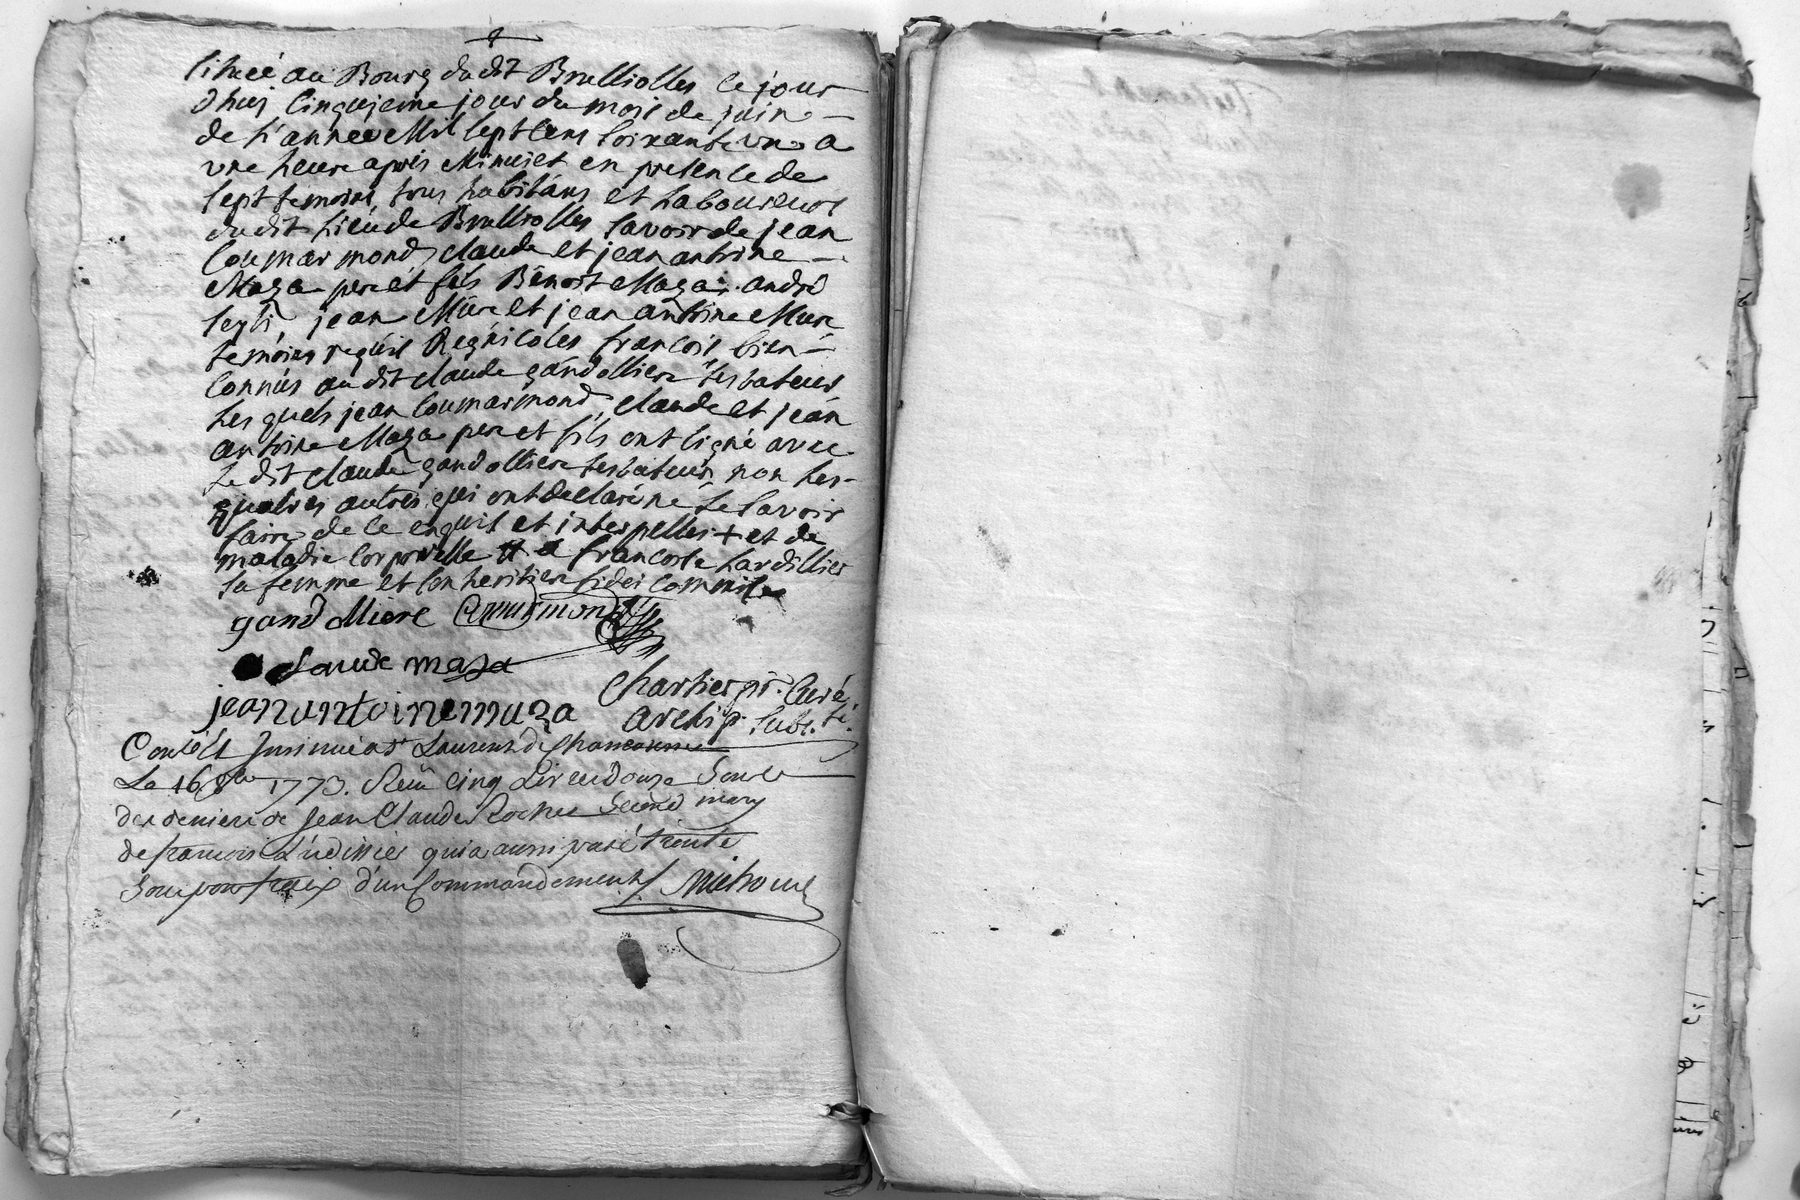 située au Bourg du dit Brulliolles ce jour
d'huy cinquieme jour du mois de juin
de l'annee Mil sept cens soixante un a
une heure apres Minuiet en presence de
sept temoins, tous habitans et Laboureurs
du dit Lieu de Brulliolles savoir de jean
Coumarmond, claude et jean antoine
Maza pere et fils Benoit Maza, andré
jean Mure et jean antoine Mure
temoins requis Regnicoles francois bien
connus au dit claude gandolliere testateur
Les quels jean Coumarmond, claude et jean
antoine Maza pere et fils ont signé avec
Le dit claude gandolliere testateur, non Les
quatres autres qui ont declaré ne Le savoir
faire de ce enquis et interpelles + et de
maladie corporelle francoise Lardillier
sa femme et son heritiere fidei commise
gandolliere Coumarmond
Claude maza
jean antoine maza
Chartier ptr. Curé
archip. St
Con.lé et Insinué a St Laurent de Chamousset
Le 16 8bre 1773. Reçu cinq Livres douze Sous
des deniers de Jean Claude Roche Second mary
de francoise L'ardillier qui a aussi payé trente
Sous pour fraix d'un Commandement /. Michoud